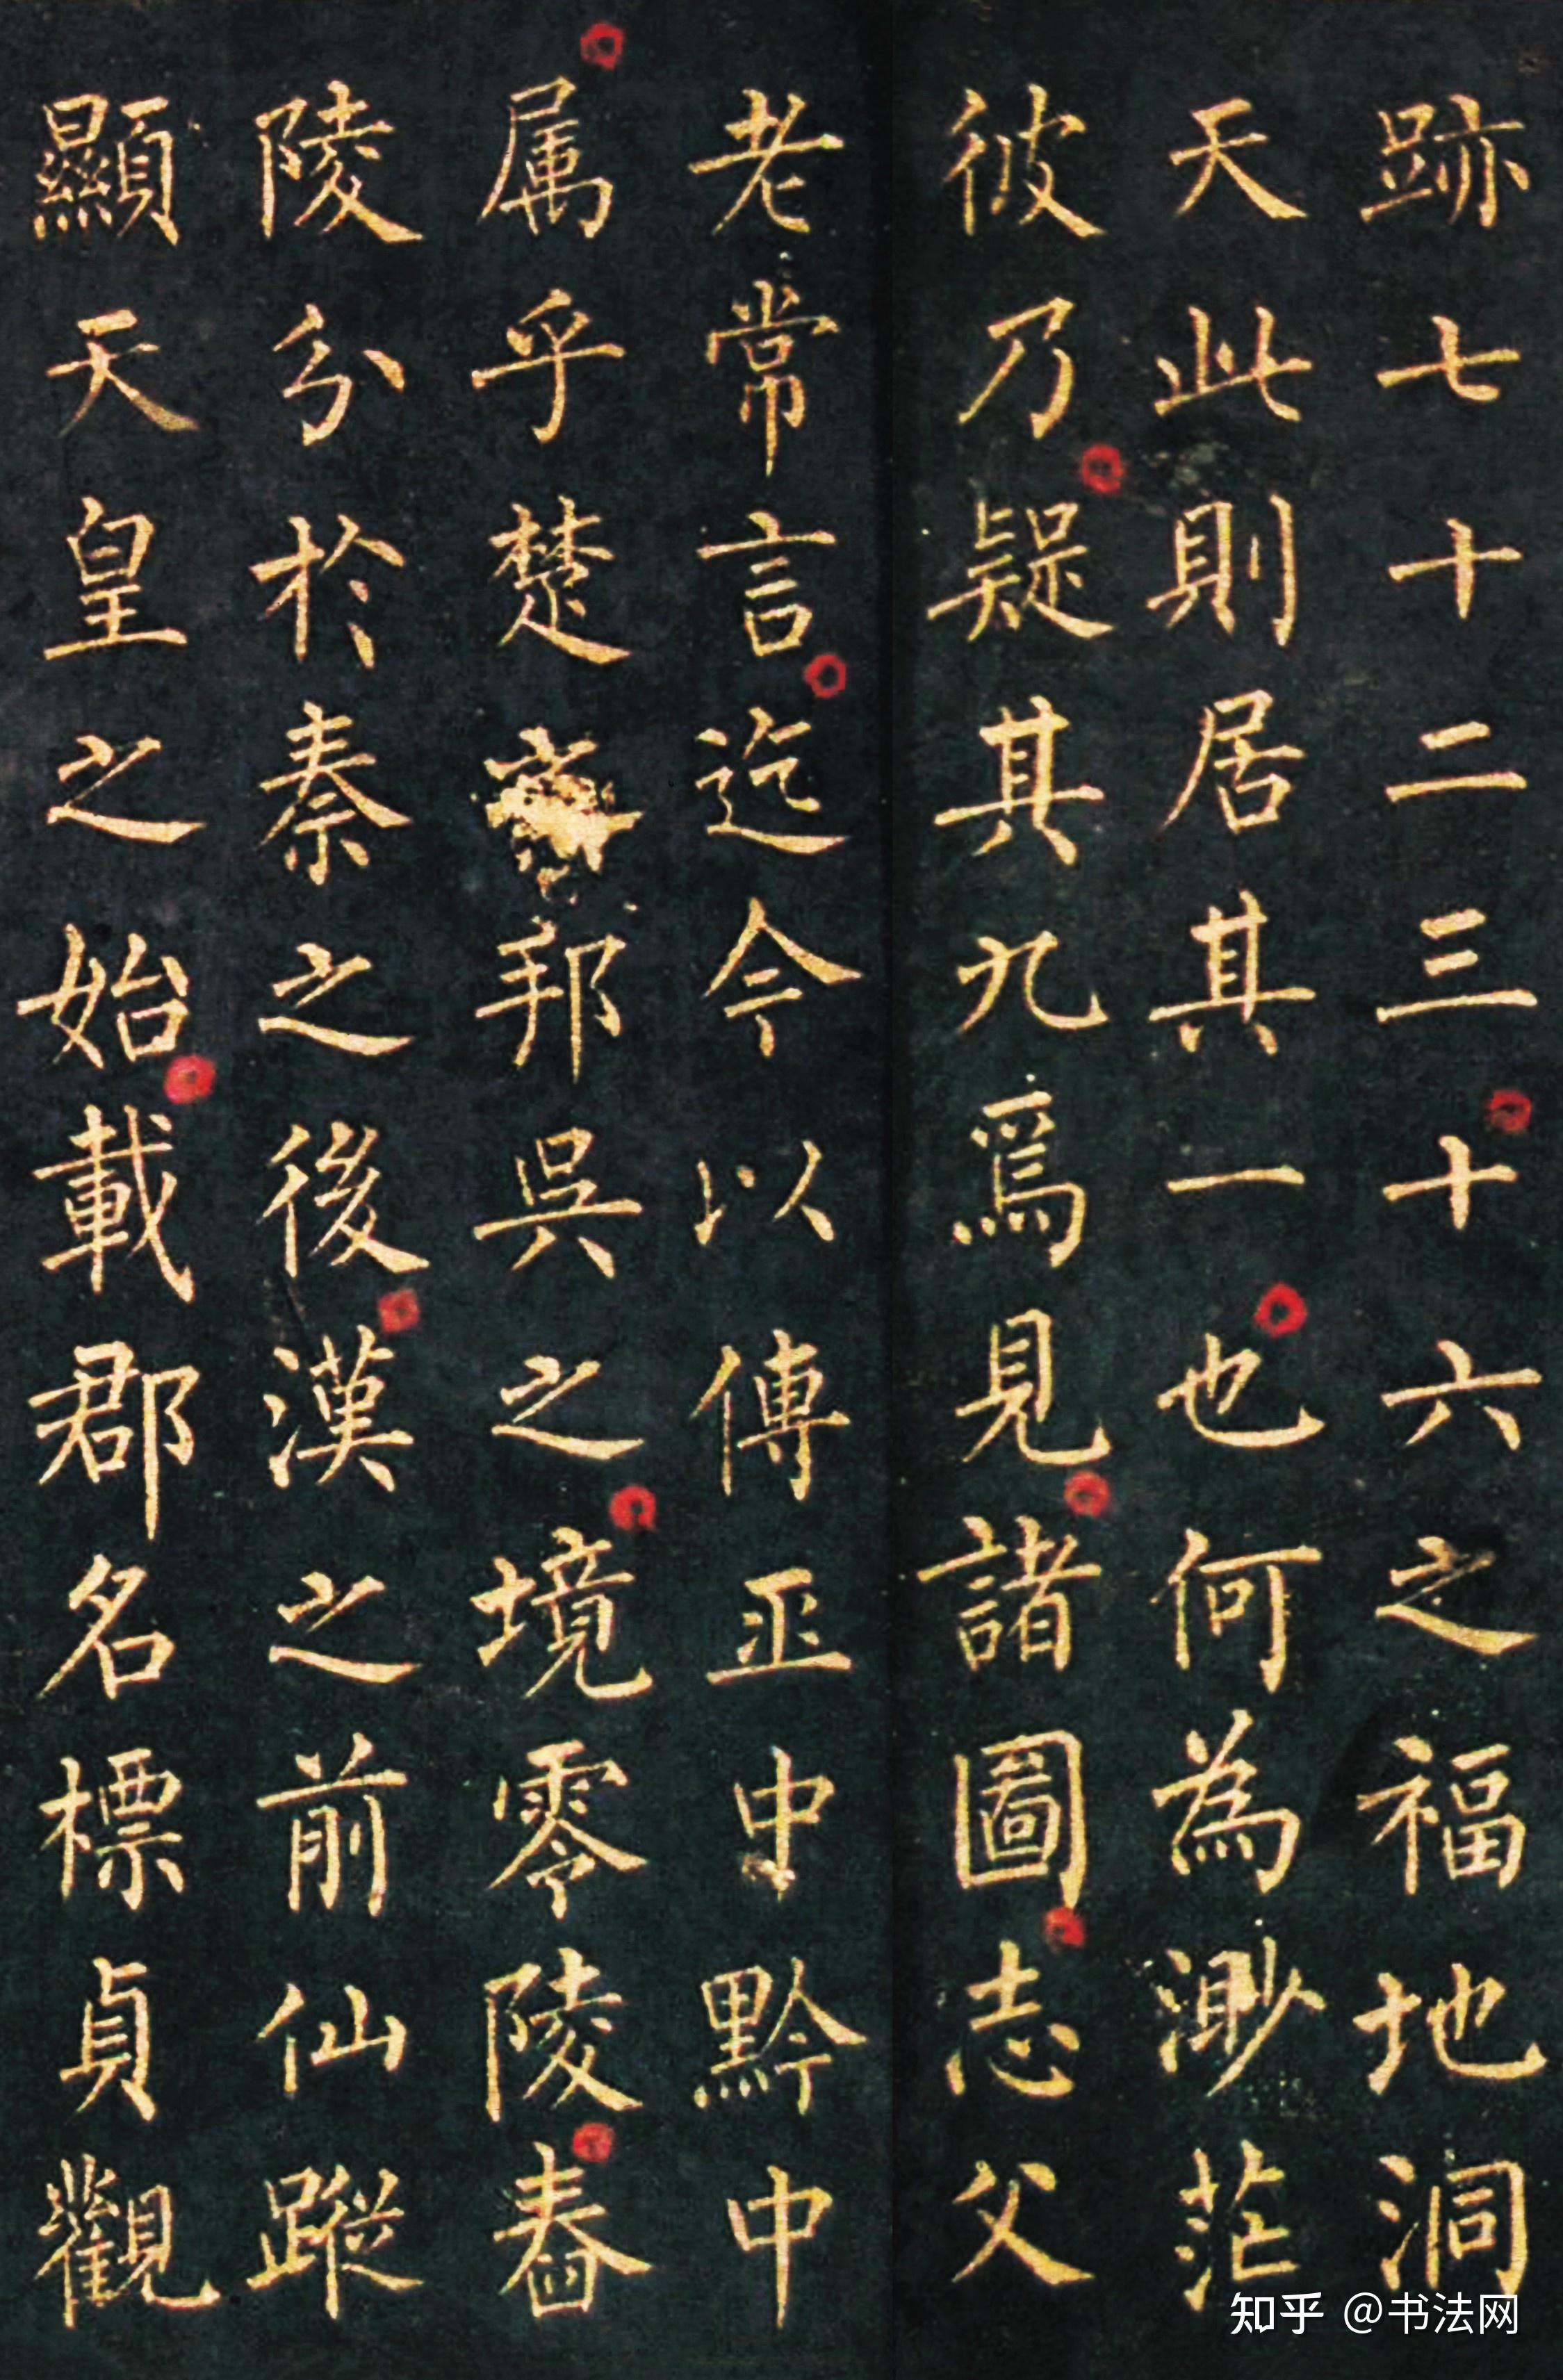 跡七十二三十六之福地洞
天此則居其一也何為渺茫
彼乃疑其九焉見諸圖志父
老常言迄今以傳正中黔中
属乎楚邦吳之境零陵舂
陵分於秦之後漢之前仙蹤
顯天皇之始載郡名標貞觀
知乎 @书法网